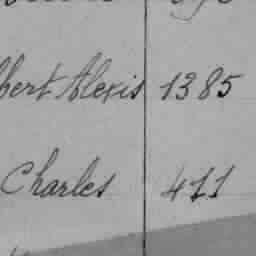 Alexis 1385
Charles 411